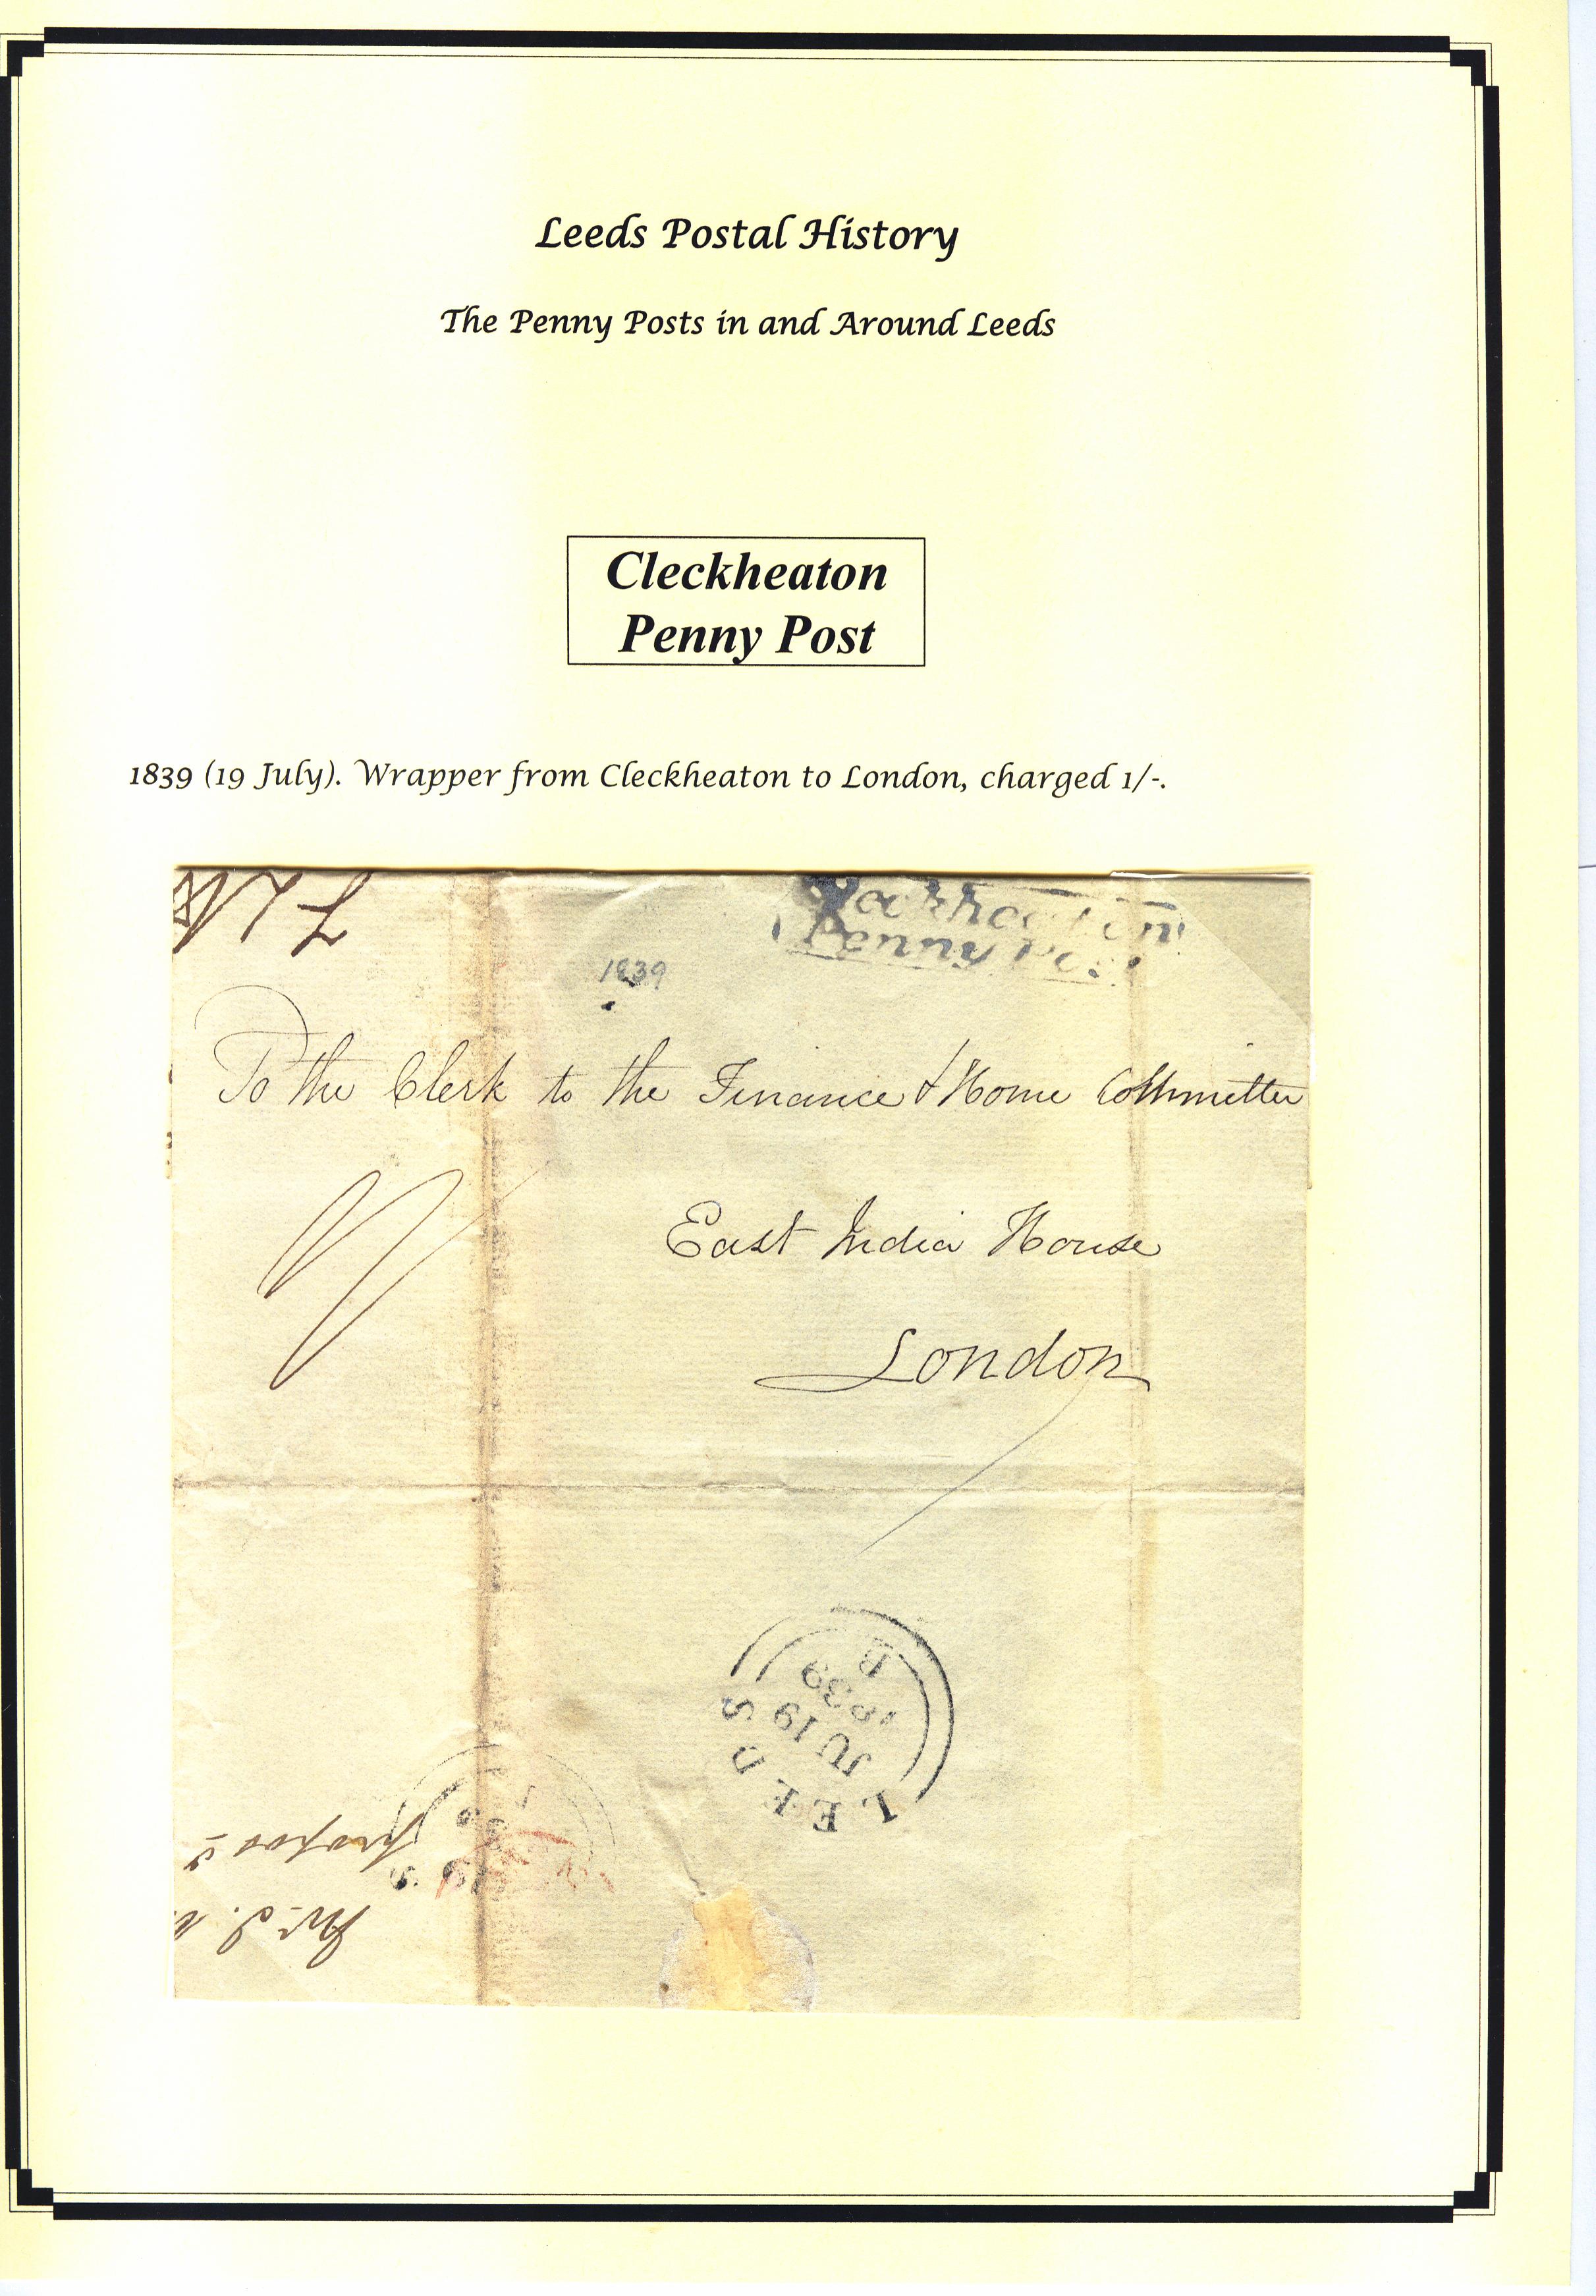 Leeds Postal History
The Penny Posts in and Around Leeds
Cleckheaton
Penny Post
1839 (19 July). Wrapper from Cleckheaton to London, charged 1/-.
Cleckheaton
Penny Post
1839
To the Clerk to the Finance & Home Committee
East India House
London
LEEDS
JU 19
1839
B